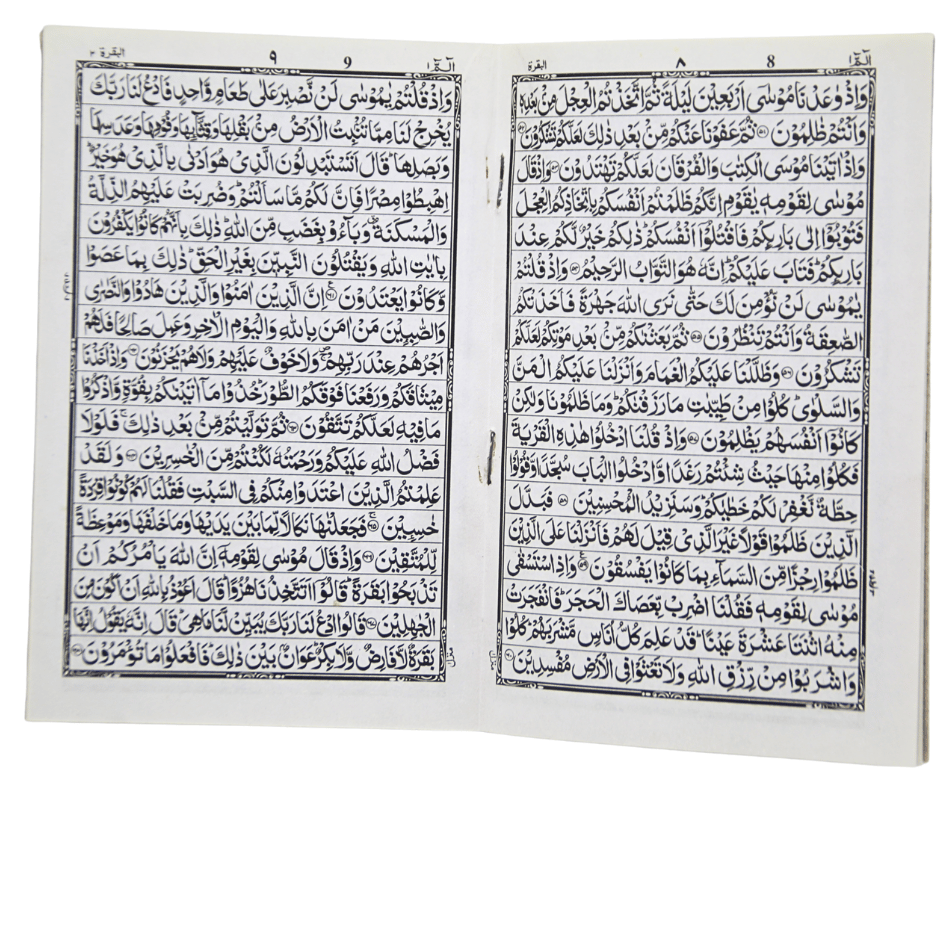 الٓمّٓ ١ 8 ٨ البقرة
وَاِذْ وٰعَدْنَا مُوْسٰٓى اَرْبَعِيْنَ لَيْلَةً ثُمَّ اتَّخَذْتُمُ الْعِجْلَ مِنْۢ بَعْدِهٖ
وَاَنْتُمْ ظٰلِمُوْنَ ﴿۵۱﴾ ثُمَّ عَفَوْنَا عَنْكُمْ مِّنْۢ بَعْدِ ذٰلِكَ لَعَلَّكُمْ تَشْكُرُوْنَ ﴿۵۲﴾
وَاِذْ اٰتَيْنَا مُوْسَى الْكِتٰبَ وَالْفُرْقَانَ لَعَلَّكُمْ تَهْتَدُوْنَ ﴿۵۳﴾ وَاِذْ قَالَ
مُوْسٰى لِقَوْمِهٖ يٰقَوْمِ اِنَّكُمْ ظَلَمْتُمْ اَنْفُسَكُمْ بِاتِّخَاذِكُمُ الْعِجْلَ
فَتُوْبُوْٓا اِلٰى بَارِئِكُمْ فَاقْتُلُوْٓا اَنْفُسَكُمْ ذٰلِكُمْ خَيْرٌ لَّكُمْ عِنْدَ
بَارِئِكُمْ فَتَابَ عَلَيْكُمْ اِنَّهٗ هُوَ التَّوَّابُ الرَّحِيْمُ ﴿۵۴﴾ وَاِذْ قُلْتُمْ
يٰمُوْسٰى لَنْ نُّؤْمِنَ لَكَ حَتّٰى نَرَى اللّٰهَ جَهْرَةً فَاَخَذَتْكُمُ
الصّٰعِقَةُ وَاَنْتُمْ تَنْظُرُوْنَ ﴿۵۵﴾ ثُمَّ بَعَثْنٰكُمْ مِّنْۢ بَعْدِ مَوْتِكُمْ لَعَلَّكُمْ
تَشْكُرُوْنَ ﴿۵۶﴾ وَظَلَّلْنَا عَلَيْكُمُ الْغَمَامَ وَاَنْزَلْنَا عَلَيْكُمُ الْمَنَّ
وَالسَّلْوٰى كُلُوْا مِنْ طَيِّبٰتِ مَا رَزَقْنٰكُمْ وَمَا ظَلَمُوْنَا وَلٰكِنْ
كَانُوْٓا اَنْفُسَهُمْ يَظْلِمُوْنَ ﴿۵۷﴾ وَاِذْ قُلْنَا ادْخُلُوْا هٰذِهِ الْقَرْيَةَ
فَكُلُوْا مِنْهَا حَيْثُ شِئْتُمْ رَغَدًا وَّادْخُلُوا الْبَابَ سُجَّدًا وَّقُوْلُوْا
حِطَّةٌ نَّغْفِرْ لَكُمْ خَطٰيٰكُمْ وَسَنَزِيْدُ الْمُحْسِنِيْنَ ﴿۵۸﴾ فَبَدَّلَ
الَّذِيْنَ ظَلَمُوْا قَوْلًا غَيْرَ الَّذِيْ قِيْلَ لَهُمْ فَاَنْزَلْنَا عَلَى الَّذِيْنَ
ظَلَمُوْا رِجْزًا مِّنَ السَّمَآءِ بِمَا كَانُوْا يَفْسُقُوْنَ ﴿۵۹﴾ وَاِذِ اسْتَسْقٰى
مُوْسٰى لِقَوْمِهٖ فَقُلْنَا اضْرِبْ بِّعَصَاكَ الْحَجَرَ فَانْفَجَرَتْ
مِنْهُ اثْنَتَا عَشْرَةَ عَيْنًا قَدْ عَلِمَ كُلُّ اُنَاسٍ مَّشْرَبَهُمْ كُلُوْا
وَاشْرَبُوْا مِنْ رِّزْقِ اللّٰهِ وَلَا تَعْثَوْا فِى الْاَرْضِ مُفْسِدِيْنَ ﴿۶۰﴾
الٓمّٓ ١ 9 ٩ البقرة ٢
وَاِذْ قُلْتُمْ يٰمُوْسٰى لَنْ نَّصْبِرَ عَلٰى طَعَامٍ وَّاحِدٍ فَادْعُ لَنَا رَبَّكَ
يُخْرِجْ لَنَا مِمَّا تُنْۢبِتُ الْاَرْضُ مِنْۢ بَقْلِهَا وَقِثَّآئِهَا وَفُوْمِهَا وَعَدَسِهَا
وَبَصَلِهَا قَالَ اَتَسْتَبْدِلُوْنَ الَّذِيْ هُوَ اَدْنٰى بِالَّذِيْ هُوَ خَيْرٌ
اِهْبِطُوْا مِصْرًا فَاِنَّ لَكُمْ مَّا سَاَلْتُمْ وَضُرِبَتْ عَلَيْهِمُ الذِّلَّةُ
وَالْمَسْكَنَةُ وَبَآءُوْ بِغَضَبٍ مِّنَ اللّٰهِ ذٰلِكَ بِاَنَّهُمْ كَانُوْا يَكْفُرُوْنَ
بِاٰيٰتِ اللّٰهِ وَيَقْتُلُوْنَ النَّبِيّٖنَ بِغَيْرِ الْحَقِّ ذٰلِكَ بِمَا عَصَوْا
وَّكَانُوْا يَعْتَدُوْنَ ﴿۶۱﴾ اِنَّ الَّذِيْنَ اٰمَنُوْا وَالَّذِيْنَ هَادُوْا وَالنَّصٰرٰى
وَالصّٰبِـِٕيْنَ مَنْ اٰمَنَ بِاللّٰهِ وَالْيَوْمِ الْاٰخِرِ وَعَمِلَ صَالِحًا فَلَهُمْ
اَجْرُهُمْ عِنْدَ رَبِّهِمْ وَلَا خَوْفٌ عَلَيْهِمْ وَلَا هُمْ يَحْزَنُوْنَ ﴿۶۲﴾ وَاِذْ اَخَذْنَا
مِيْثَاقَكُمْ وَرَفَعْنَا فَوْقَكُمُ الطُّوْرَ خُذُوْا مَآ اٰتَيْنٰكُمْ بِقُوَّةٍ وَّاذْكُرُوْا
مَا فِيْهِ لَعَلَّكُمْ تَتَّقُوْنَ ﴿۶۳﴾ ثُمَّ تَوَلَّيْتُمْ مِّنْۢ بَعْدِ ذٰلِكَ فَلَوْلَا
فَضْلُ اللّٰهِ عَلَيْكُمْ وَرَحْمَتُهٗ لَكُنْتُمْ مِّنَ الْخٰسِرِيْنَ ﴿۶۴﴾ وَلَقَدْ
عَلِمْتُمُ الَّذِيْنَ اعْتَدَوْا مِنْكُمْ فِى السَّبْتِ فَقُلْنَا لَهُمْ كُوْنُوْا قِرَدَةً
خٰسِـِٕيْنَ ﴿۶۵﴾ فَجَعَلْنٰهَا نَكَالًا لِّمَا بَيْنَ يَدَيْهَا وَمَا خَلْفَهَا وَمَوْعِظَةً
لِّلْمُتَّقِيْنَ ﴿۶۶﴾ وَاِذْ قَالَ مُوْسٰى لِقَوْمِهٖٓ اِنَّ اللّٰهَ يَاْمُرُكُمْ اَنْ
تَذْبَحُوْا بَقَرَةً قَالُوْٓا اَتَتَّخِذُنَا هُزُوًا قَالَ اَعُوْذُ بِاللّٰهِ اَنْ اَكُوْنَ مِنَ
الْجٰهِلِيْنَ ﴿۶۷﴾ قَالُوا ادْعُ لَنَا رَبَّكَ يُبَيِّنْ لَّنَا مَا هِيَ قَالَ اِنَّهٗ يَقُوْلُ اِنَّهَا
بَقَرَةٌ لَّا فَارِضٌ وَّلَا بِكْرٌ عَوَانٌۢ بَيْنَ ذٰلِكَ فَافْعَلُوْا مَا تُؤْمَرُوْنَ ﴿۶۸﴾